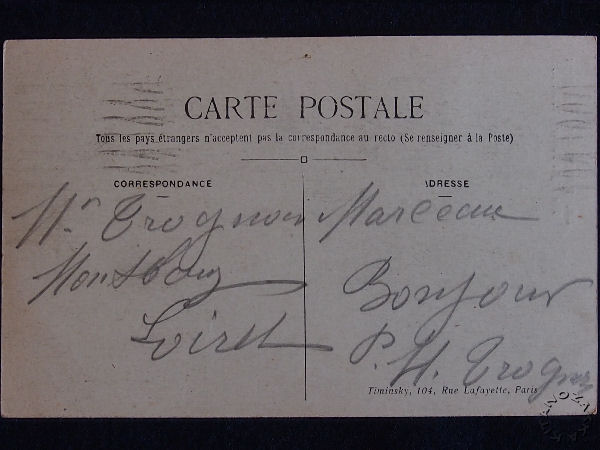 CARTE POSTALE
Tous les pays étrangers n'acceptent pas la correspondance au recto (Se renseigner à la Poste)
CORRESPONDANCE
ADRESSE
Mr Trognon Marceau
Loiret
Bonjour
P. H. Trognon
Timinsky, 104, Rue Lafayette, Paris